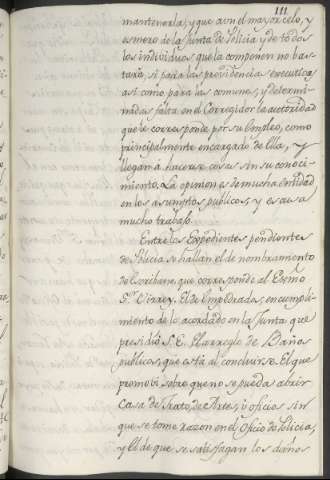 111
mantenerla; y que aun el mayor celo, y
esmero de la Junta de Policia y de todos
los individuos que la componen no bas-
tará, si para las providencias executivas
asi como para las comunes, y determi-
nadas falta en el Corregidor la autoridad
que le corresponde por su Empleo, como
principalmente encargado de Ella, y
llegan á hacerse cosas sin su conoci-
miento. La opinion es de mucha entidad
en los asumptos publicos, y escusa
mucho trabajo.
Entre los Expedientes pendientes
de Policia se hallan el de nombramiento
de Escribano, que corresponde al Exmo
Sr. Virrey. El de Empleados, en cumpli-
miento de lo acordado en la Junta que
presidió S. E. El arreglo de Baños
publicos, que está al concluirse. El que
promovi sobre que no se pueda abrir
Casa de Trato, de Arte, ú oficios sin
que se tome razon en el Oficio de Policia,
y El de que se satisfagan los daños